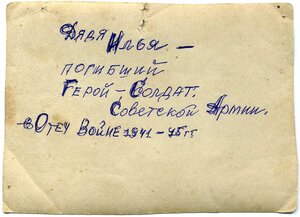 Дядя Илья —
погибший
Герой - Солдат.
Советской Армии.
в Отеч Войне 1941 - 45 гг